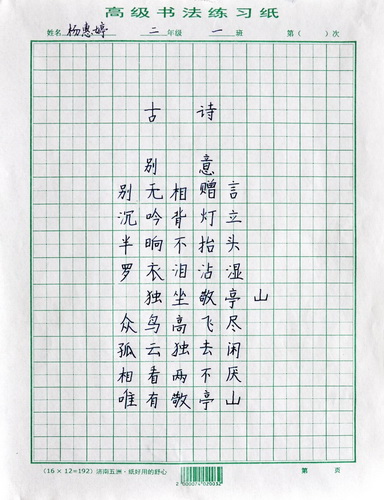 高级书法练习纸
姓名 杨惠婷 二 年级 一 班 第( )次
古诗
别意
别无相赠言
沉吟背灯立
半晌不抬头
罗衣泪沾湿
独坐敬亭山
众鸟高飞尽
孤云独去闲
相看两不厌
唯有敬亭山
(16×12=192) 济南五洲·纸好用的舒心 第 页